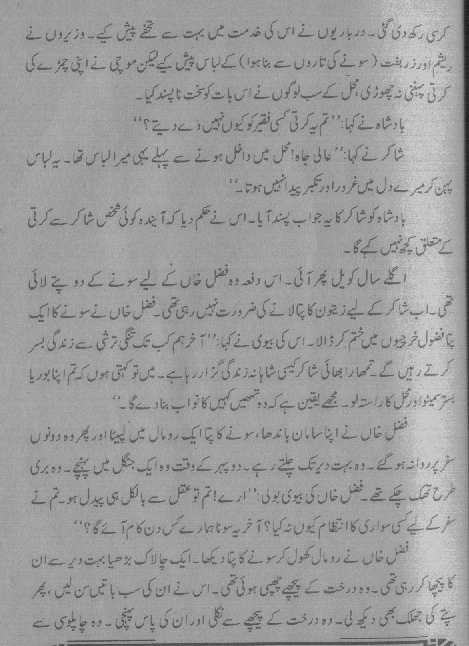 کرسی رکھ دی گئی۔ درباریوں نے اس کی خدمت میں بہت سے تحفے پیش کیے۔ وزیروں نے
ریشم اور زربفت (سونے کی تاروں سے بنا ہوا) کے لباس پیش کیے لیکن موچی نے اپنی چمڑے کی
کرتی پہننی نہ چھوڑی، محل کے سب لوگوں نے اس بات کو سخت نا پسند کیا۔
بادشاہ نے کہا: ’’تم یہ کرتی کسی فقیر کو کیوں نہیں دے دیتے؟‘‘
شاکر نے کہا: ’’عالی جاہ! محل میں داخل ہونے سے پہلے یہی میرا لباس تھا۔ یہ لباس
پہن کر میرے دل میں غرور اور تکبر پیدا نہیں ہوتا۔‘‘
بادشاہ کو شاکر کا یہ جواب پسند آیا۔ اس نے حکم دیا کہ آیندہ کوئی شخص شاکر سے کرتی
کے متعلق کچھ نہیں کہے گا۔
اگلے سال کویل پھر آئی۔ اس دفعہ وہ فضل خاں کے لیے سونے کے دو پتے لائی
تھی۔ اب شاکر کے لیے زیتون کا پتا لانے کی ضرورت نہیں رہی تھی۔ فضل خاں نے سونے کا ایک
پتا فضول خرچیوں میں ختم کر ڈالا۔ اس کی بیوی نے کہا: ’’آخر ہم کب تک تنگی ترشی سے زندگی بسر
کرتے رہیں گے۔ تمھارا بھائی شاکر کیسی شاہانہ زندگی گزار رہا ہے۔ میں تو کہتی ہوں کہ تم اپنا بوریا
بستر سمیٹو اور محل کا راستہ لو۔ مجھے یقین ہے کہ وہ تمھیں کہیں کا نواب بنا دے گا۔‘‘
فضل خاں نے اپنا سامان باندھا، سونے کا پتا ایک رومال میں لپیٹا اور پھر وہ دونوں
سفر پر روانہ ہو گئے۔ وہ بہت دیر تک چلتے رہے۔ دوپہر کے وقت وہ ایک جنگل میں پہنچے۔ وہ بری
طرح تھک چکے تھے۔ فضل خاں کی بیوی بولی: ’’ارے! تم تو عقل سے بالکل ہی پیدل ہو۔ تم نے
سفر کے لیے کسی سواری کا انتظام کیوں نہ کیا؟ آخر یہ سونا ہمارے کس دن کام آئے گا؟‘‘
فضل خاں نے رومال کھول کر سونے کا پتا دیکھا۔ ایک چالاک بڑھیا بہت دیر سے ان
کا پیچھا کر رہی تھی۔ وہ درخت کے پیچھے چھپی ہوئی تھی۔ اس نے ان کی سب باتیں سن لیں، پھر
پتے کی جھلک بھی دیکھ لی۔ وہ درخت کے پیچھے سے نکلی اور ان کی پاس پہنچی۔ وہ چاپلوسی سے